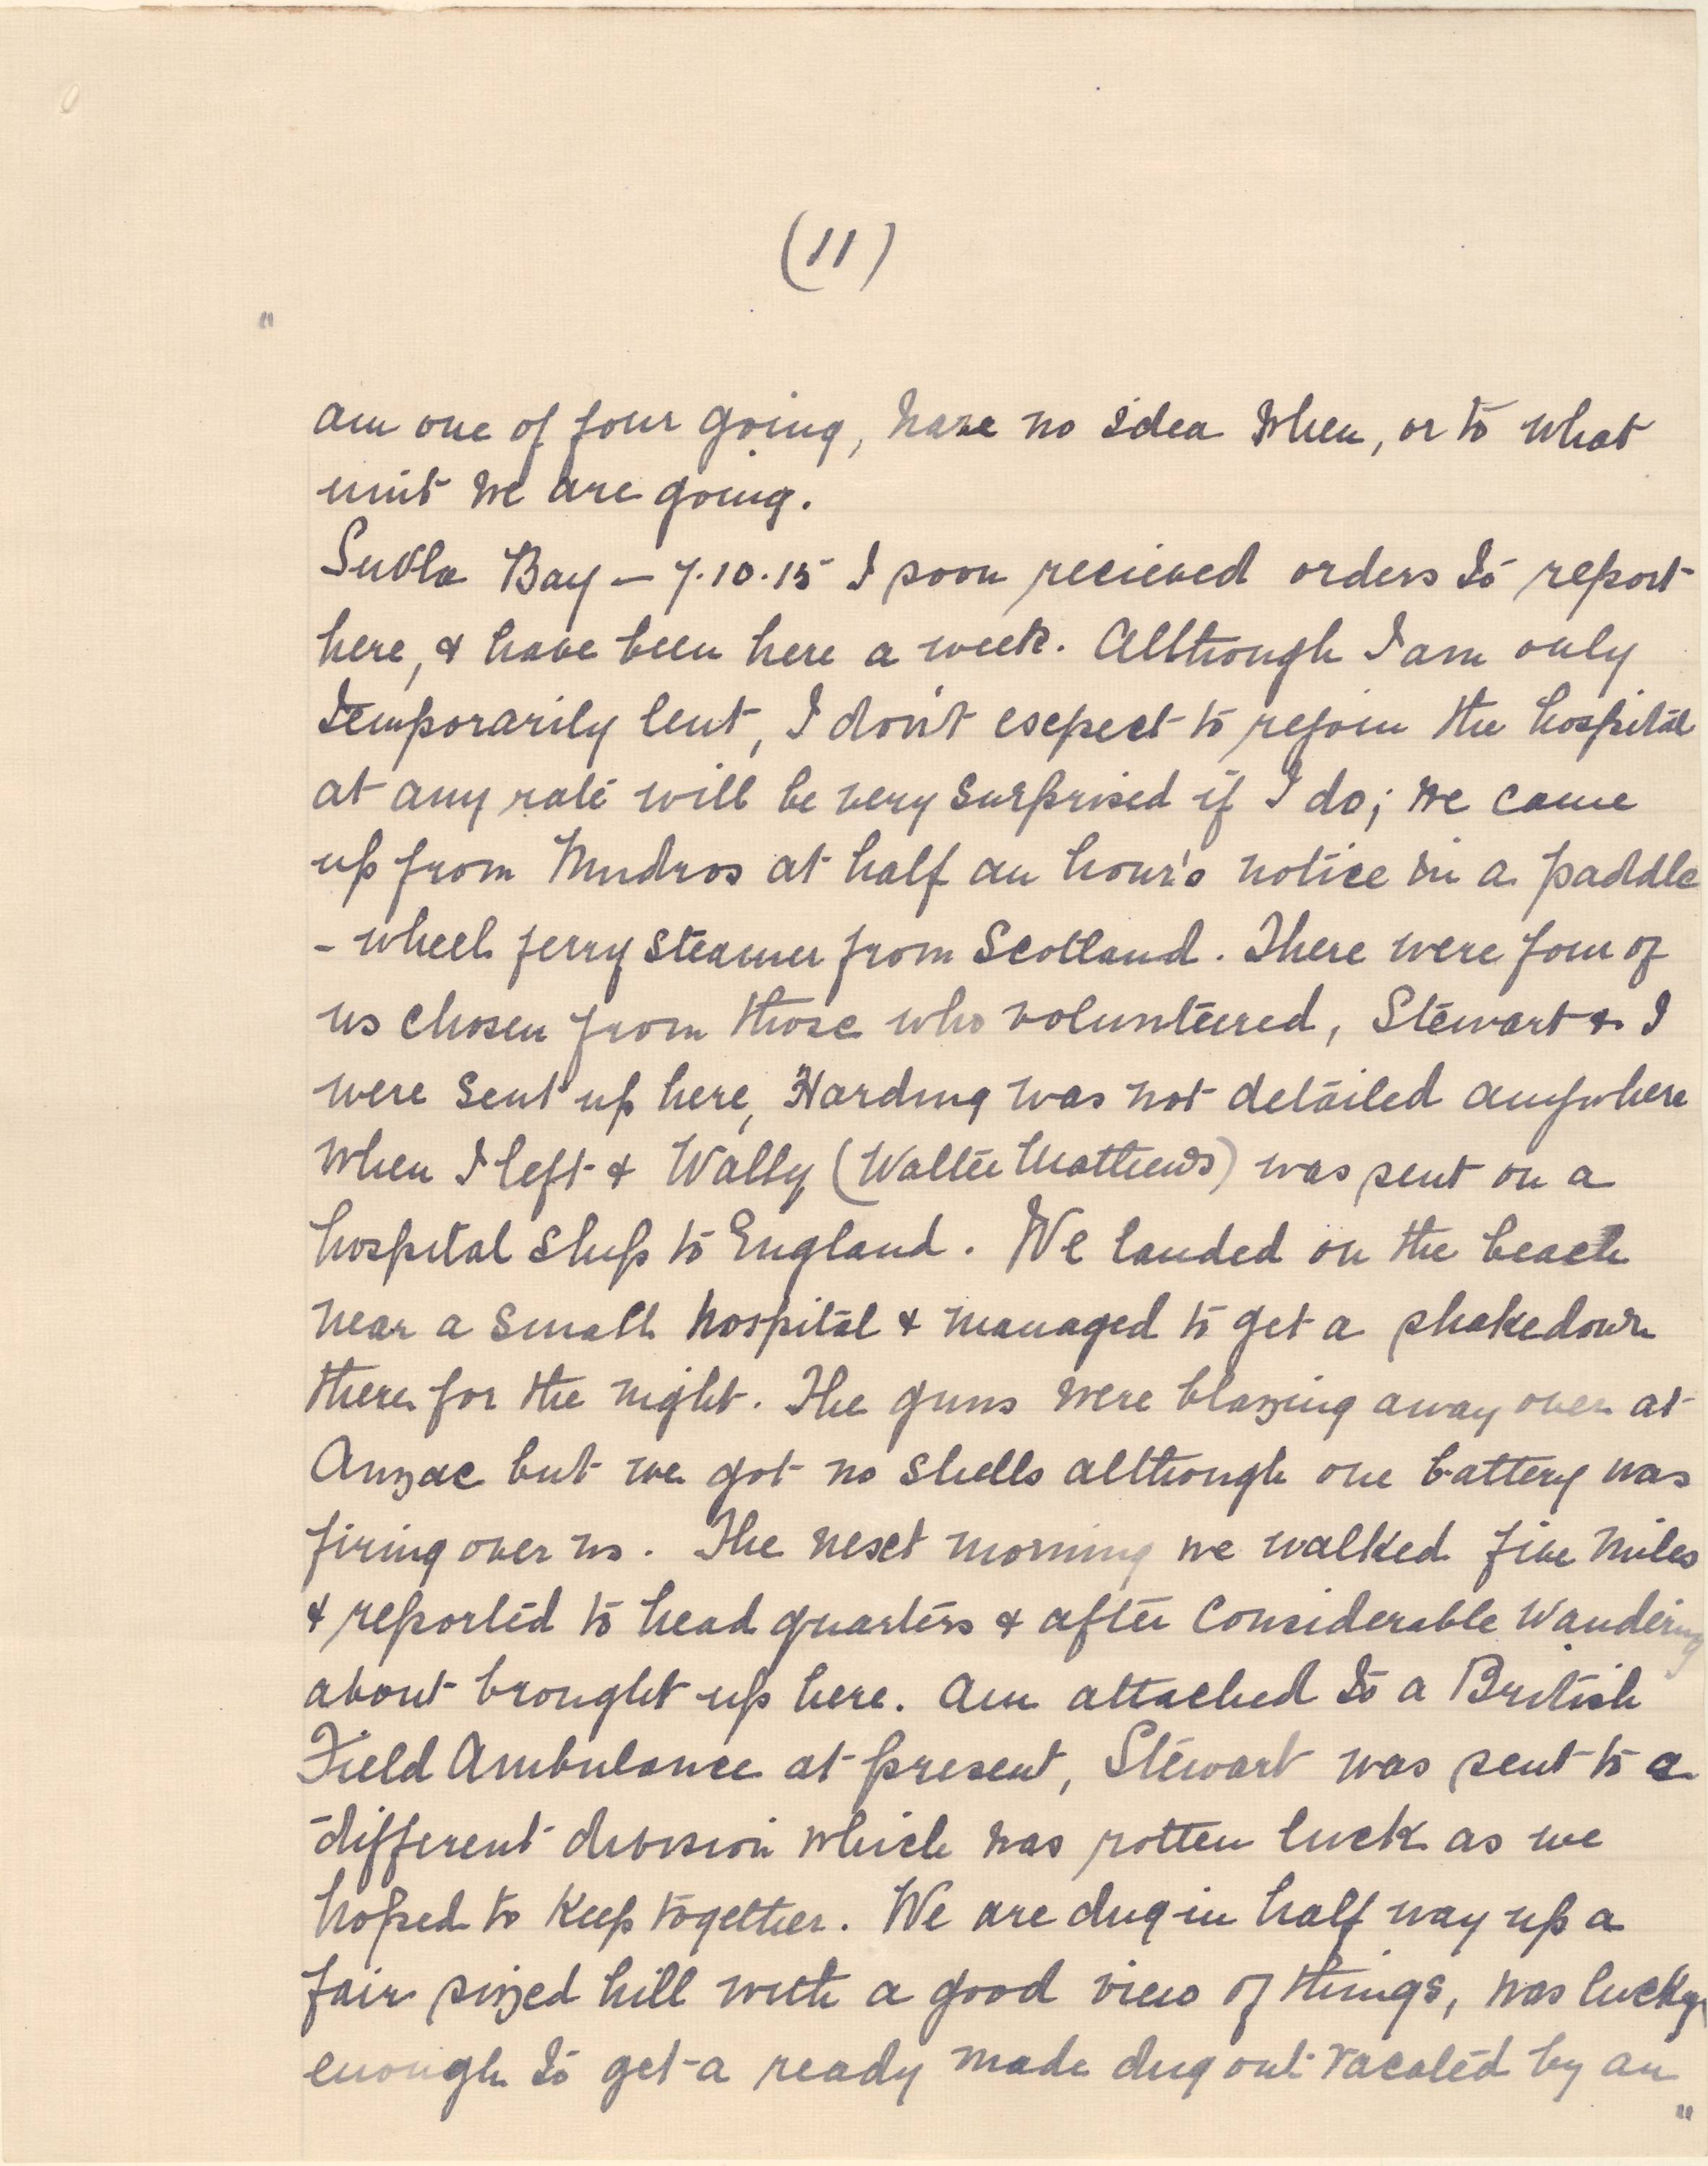 (11)
"
am one of four going, have no idea when, or to what
unit we are going.
Suvla Bay – 7.10.15 I soon recieved orders to report
here, & have been here a week. Although I am only
temporarily lent, I don't expect to rejoin the hospital
at any rate will be very surprised if I do; we came
up from Mudros at half an hour's notice in a paddle
- wheel ferry steamer from Scotland. There were four of
us chosen from those who volunteered, Stewart & I
were sent up here, Harding was not detailed anywhere
when I left & Wally (Walter Mathews) was sent on a
hospital ship to England. We landed on the beach
near a small hospital & managed to get a shakedown
there for the night. The guns were blazing away over at
Anzac but we got no shells although one battery was
firing over us. The next morning we walked five miles
& reported to head quarters & after considerable wandering
about brought up here. Am attached to a British
Field Ambulance at present, Stewart was sent to a
different division which was rotten luck as we
hoped to keep together. We are dug in half way up a
fair sized hill with a good view of things, was lucky
enough to get a ready made dug out vacated by an
"